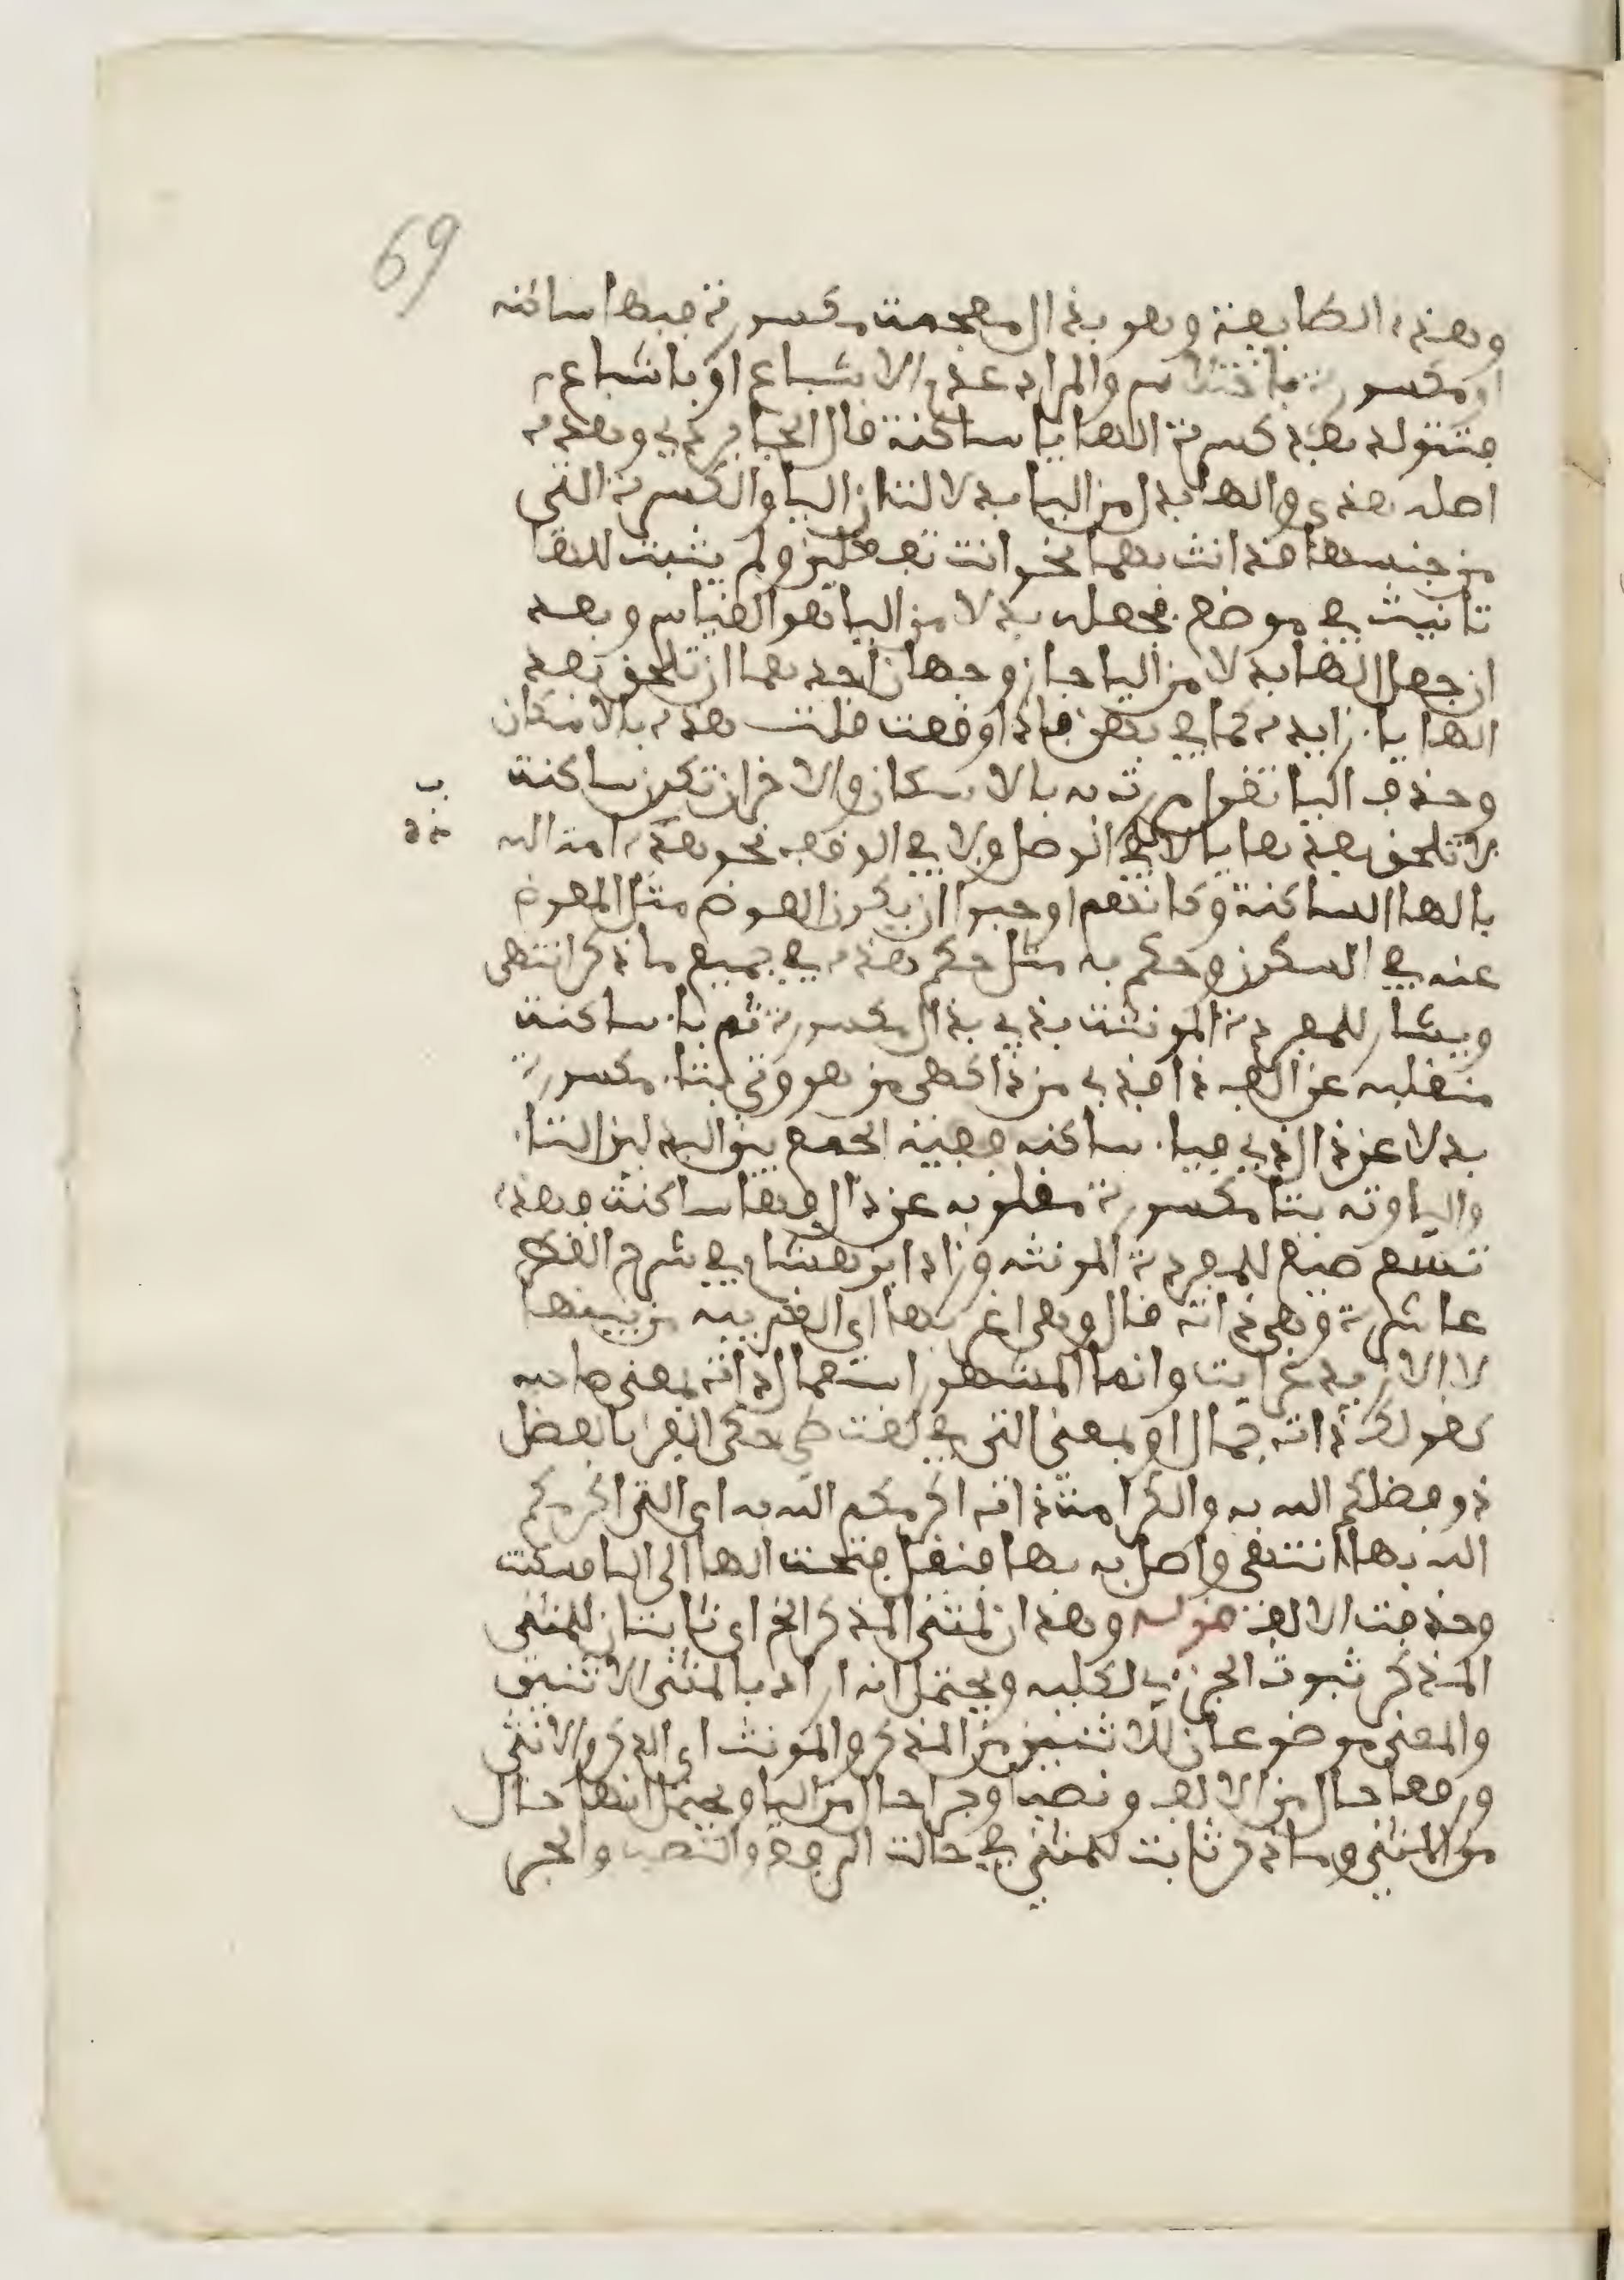 69
وهذه الطايفة وهو بذال معجمة مكسورة فبها ساكنة
او مكسورة باختلاس والمراد عدم الاشباع او باشباع
فتتولد بعد كسرة الها يا ساكنة قال الجابردي وهذه
اصله هذي والها بدل من اليا بدلالتنا ان اليا والكسرة التي
من جنسها قد انث بهما نحو انت تفعلين ولم يثبت للها
تانيث في موضع فجعله بدلا من اليا هو القياس وبعد
ان جعل الها بدلا من اليا جاز وجهان احدهما ان تلحق بعد
الها يا زايدة كما في بهي فاذا وقفت قلت هذه بالاسكان
وحذف اليا تقول مررت به بالاسكان والاخر ان تكون ساكنة
لا تلحق بعدها يا لا في الوصل ولا في الوقف نحو هذه امة الله
بالها الساكنة وكانهم اوجبوا ان يكون العوض مثل المعوض
عنه في السكون وحكم به مثل حكم هذه في جميع ما ذكر انتهى
ويشار للمفردة المونثة بذي بذال مكسورة ثم يا ساكنة
منقلبة عن الف ذا فذي من ذا كهي من هو وتي بتا مكسورة
بدلا عن ذال ذي فيا ساكنة
واليا وته بتا مكسورة مقلوبة عن ذال وها ساكنة فهذه
تسع صيغ للمفردة المونثة وزاد ابن هشام في شرح القطر
عاشرة وهي ذات قال وهي اغربها اي الغريبة من بينها
وانما المشهور استعمال ذات بمعنى صاحبة
كقولك ذات جمال او بمعنى التي في لغة طي حكى الفرا بالفضل
ذو فضلكم الله به والكرامة ذات اكرمكم الله به اي التي اكرمكم
الله بها انتهى واصل به بها فنقل فتحة الها الى البا فسكنت
وحذفت الالف قوله وهذان لمثنى المذكر الخ اي ثابتان للمثنى
المذكر ثبوت الجزءي لكليه ويحتمل انه اراد بالمثنى الاثنين
والمعنى موضوعان للاثنين من المذكر والمونث اي الذكر والانثى
ورفعا حال من الالف ونصبا وجرا حال من اليا ويحتمل انها حال
من المثنى وما ذكر ثابت للمثنى في حالة الرفع والنصب والجر